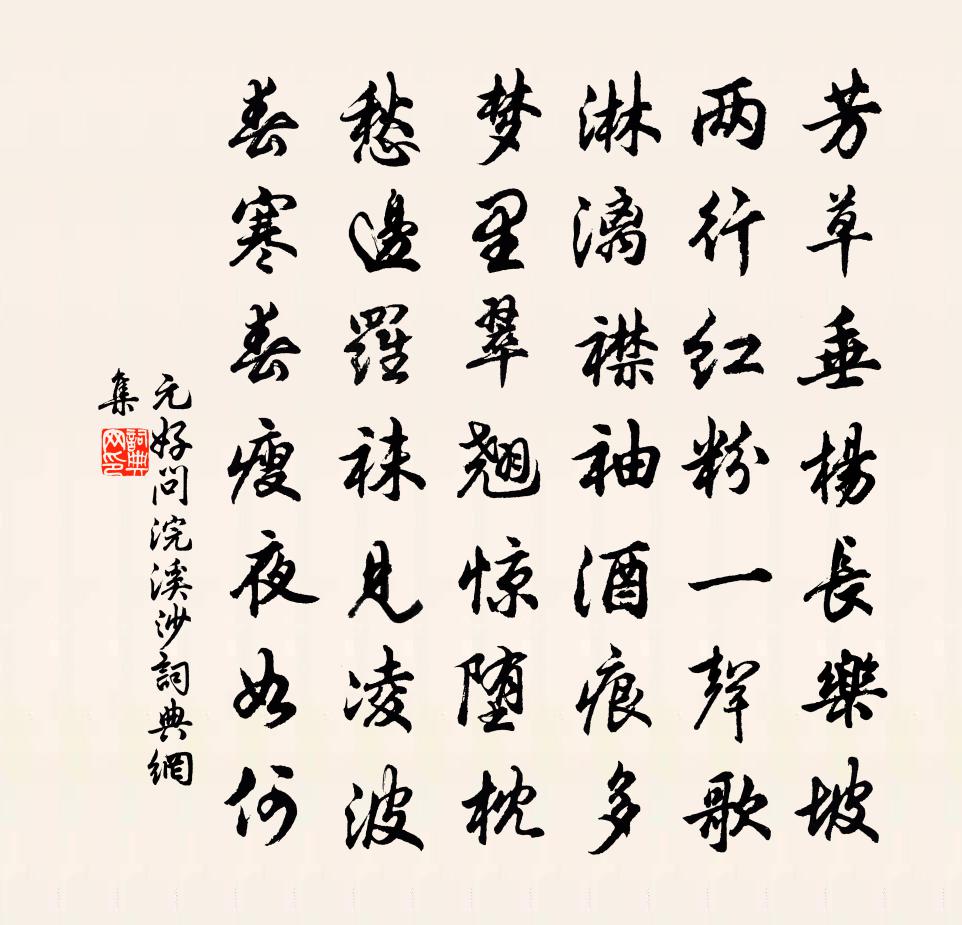 芳草垂楊長樂坡
两行红粉一聲歌
淋漓襟袖酒痕多
梦里翠翘惊堕枕
愁邊羅袜見凌波
春寒春瘦夜如何
元好问浣溪沙詞典網
集
詞典网印